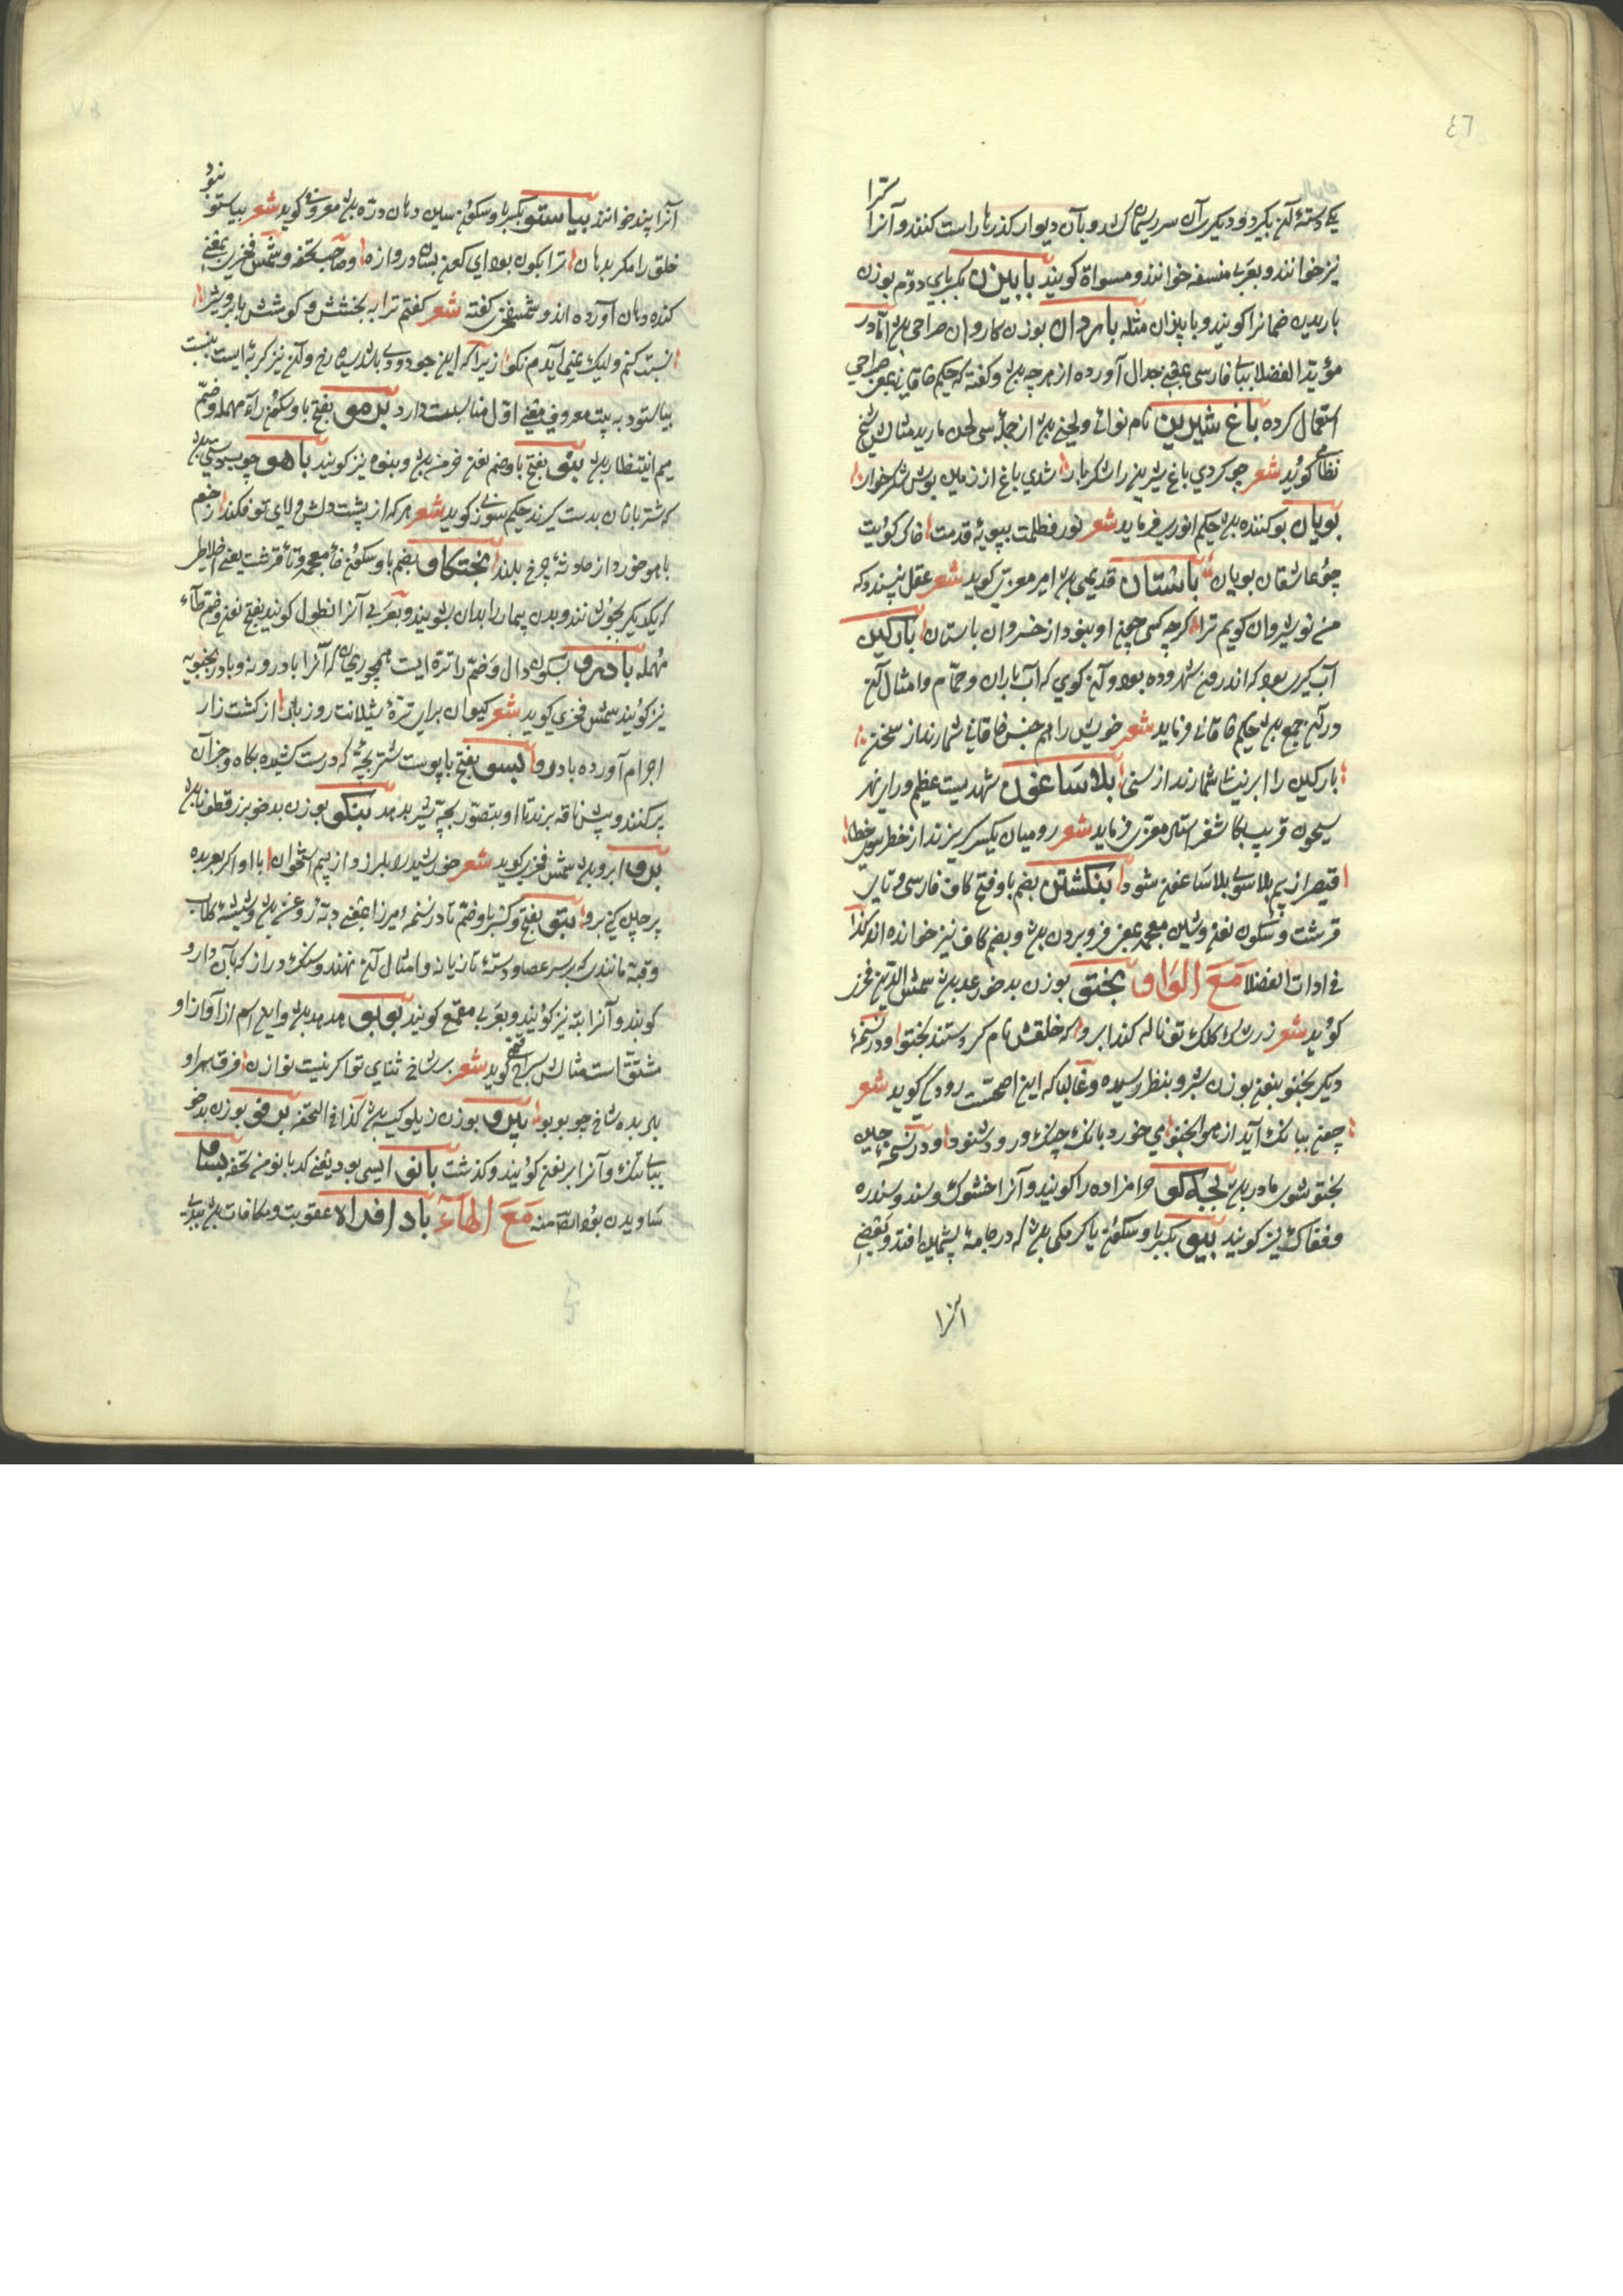 ٤٦
کرا
یکی دسته آن بگیرد و دیگر آن سر ریسمان را کشد و بآن دیوار گذرها راست کنند و آنرا
نیز خوانند و بعربی منسفه خوانند و مسواة کویند بابیزن بکسر بای دوم بوزن
باریدن ضمانرا کویند و باپزان مثله باردان بوزن کاروان صراحی باشد اما در
مؤید الفضلا ببای فارسی بمعنی جدال آورده از هرچه باشد و کفته که حکیم خاقانی بمعنی صراحی
استعمال کرده باغ شیرین نام نوائی و لحنی باشد از جمله سی لحن باربد مثالش شیخ
نظامی کوید شعر چو کردی باغ شیرین را شکربار شدی باغ از زمین بوسش شکرخوار
بویان بوکننده باشد حکیم انوری فرماید شعر نور ظلمت بپویه قدمت خاک کویت
چو عاشقان بویان باستان قدیمی باشد امیر معزی کوید شعر عقل نپسندد که
من نوشیروان کویم ترا کرچه کس چون او نبود از خسروان باستان بارکین
آب کیری بود که اندرون شهر و ده بود و آن کوی که آب باران و حمام و امثال آن
در آن جمع باشد حکیم خاقانی فرماید شعر خویش را هم جنس خاقانی شمارند از سخن
بارکین را ابر نیسان شمارند از سخی بلاساغون شهریست عظیم ورای نهر
سیحون قریب بکاشغر استاد معزی فرماید شعر رومیان یکسر کریزند از خطر سوی خطا
قیصر از بیم بلا سوی بلاساغون شود بنکشتن بضم با و فتح کاف فارسی و تای
قرشت و سکون نون و شین معجمه بمعنی فرو بردن باشد و بضم کاف نیز خوانده اند کذا
فی ادات الفضلا مَعَ الوَاو بختو بوزن بدخو رعد باشد شمس الدین فخری
کوید شعر زرشک کلک تو ناله کند ابر که خلقش نام کردستند بختو و در نسخهٔ
دیکر بختو بنون بوزن شرو بنظر رسیده و غالبا که این اصحست رودکی کوید شعر
چون ببانک آید از هوا بختو می خور و بانک چنک و رود شنو و در نسخه چنین
بختو شوی مادر باشد بچه کو حرامزاده را کویند و آنرا خشوک و سند و سندره
و فغاک نیز کویند بیو بکسر با و سکون یا کرمکی باشد که در جامه پشمین افتد و بعضی
آنرا
بنو
آنرا پند خوانند بیاستو بکسر با و سکون سین دهان دره باشد معروفی کوید شعر بیاستو
خلق را مکر بدهان ترا بکون بود ای کون بسان دروازه و صاحب تحفه و شمس فخری بمعنی
کنده دهان آورده اند و شمس فخری کفته شعر کفتم ترا به بخشش و کوشش بابر و شیر
نسبت کنم ولیک نمی آیدم نکو زیرا که این جود دودی باشد سیاه رخ و آن نیز کربه ایست
بیاستو به بیت معروفی معنی اول مناسبت دارد برمو بفتح با و سکون راء مهمله و ضم
میم انیتظار باشد بنو بفتح با و ضم نون خرمن باشد و بنوه نیز کویند باهو چوبدستی باشد
که شتربانان بدست کیرند حکیم سوزنی کوید شعر هر که از پشت دلش ولای تو فکند زخم
باهو خورد از حادثه چرخ بلند بختکاو بضم با و سکون خاء معجمه و تاء قرشت یعنی اخلاطی
که یکدیکر بجوشانند و بدن بیمار را بدان بشویند و بعربی آنرا نطول کویند بفتح نون و ضم طاء
مهمله بادرو بسکون دال و ضم را تره ایست همچو ریحان که آنرا بادرونه و بادرنجبویه
نیز کویند شمس فخری کوید شعر کیوان برای ترهٔ شیلانت روز بار از کشت زار
اجرام آورده بادرو بسو بفتح با پوست شتر بچه که درست کشیده بکاه و جز آن
پر کنند و پیش ناقه برند تا او بتصور بچه شیر بدهد بنکو بوزن بدخو بزرقطونا باشد
برو ابرو باشد شمس فخری کوید شعر خورشید بلرزد از بیم استخوان با او اکر بعربده
پرچین کنی برو بتو بفتح و کسر با و ضم تا در نسخه میرزا بمعنی دبه روغن باشد و شیشه کلاب
و قبه مانندی که بر سر عصا و دسته تازیانه و امثال آن نهند و سنک دراز که بآن دارو
کوبند و آنرا بته نیز کویند و بعربی مقمع کویند بوبو هدهد باشد و این اسم از آواز او
مشتق است مثالش سراج کوید شعر بر شاخ ثنای تو اکر نیست نوازن فرق سر او
باد بریده شاخ چو بوبو بیرو بوزن نیلو کیسه باشد کذا فی التحفه برفو بوزن بدخو
بانو ایسی بود یعنی کدبانو من تحفه بساو
ساویدن بود ایضا منه مَعَ الهآءِ باد افراه عقوبت و مکافات باشد